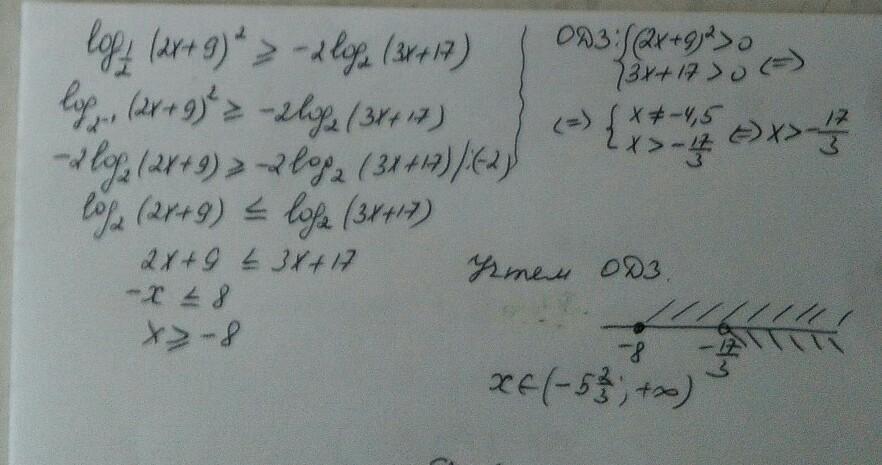 log_{1/2} (2x+9)² ≥ -2log₂ (3x+17)
log_{2⁻¹} (2x+9)² ≥ -2log₂ (3x+17)
-2log₂ (2x+9) ≥ -2log₂ (3x+17) |:(-2)
log₂ (2x+9) ≤ log₂ (3x+17)
2x+9 ≤ 3x+17
-x ≤ 8
x ≥ -8
ОДЗ: { (2x+9)² > 0
3x+17 > 0 <=>
<=> { x ≠ -4,5
x > -17/3 <=> x > -17/3
Учтем ОДЗ.
-8 -17/3
x ∈ (-5 2/3; +∞)